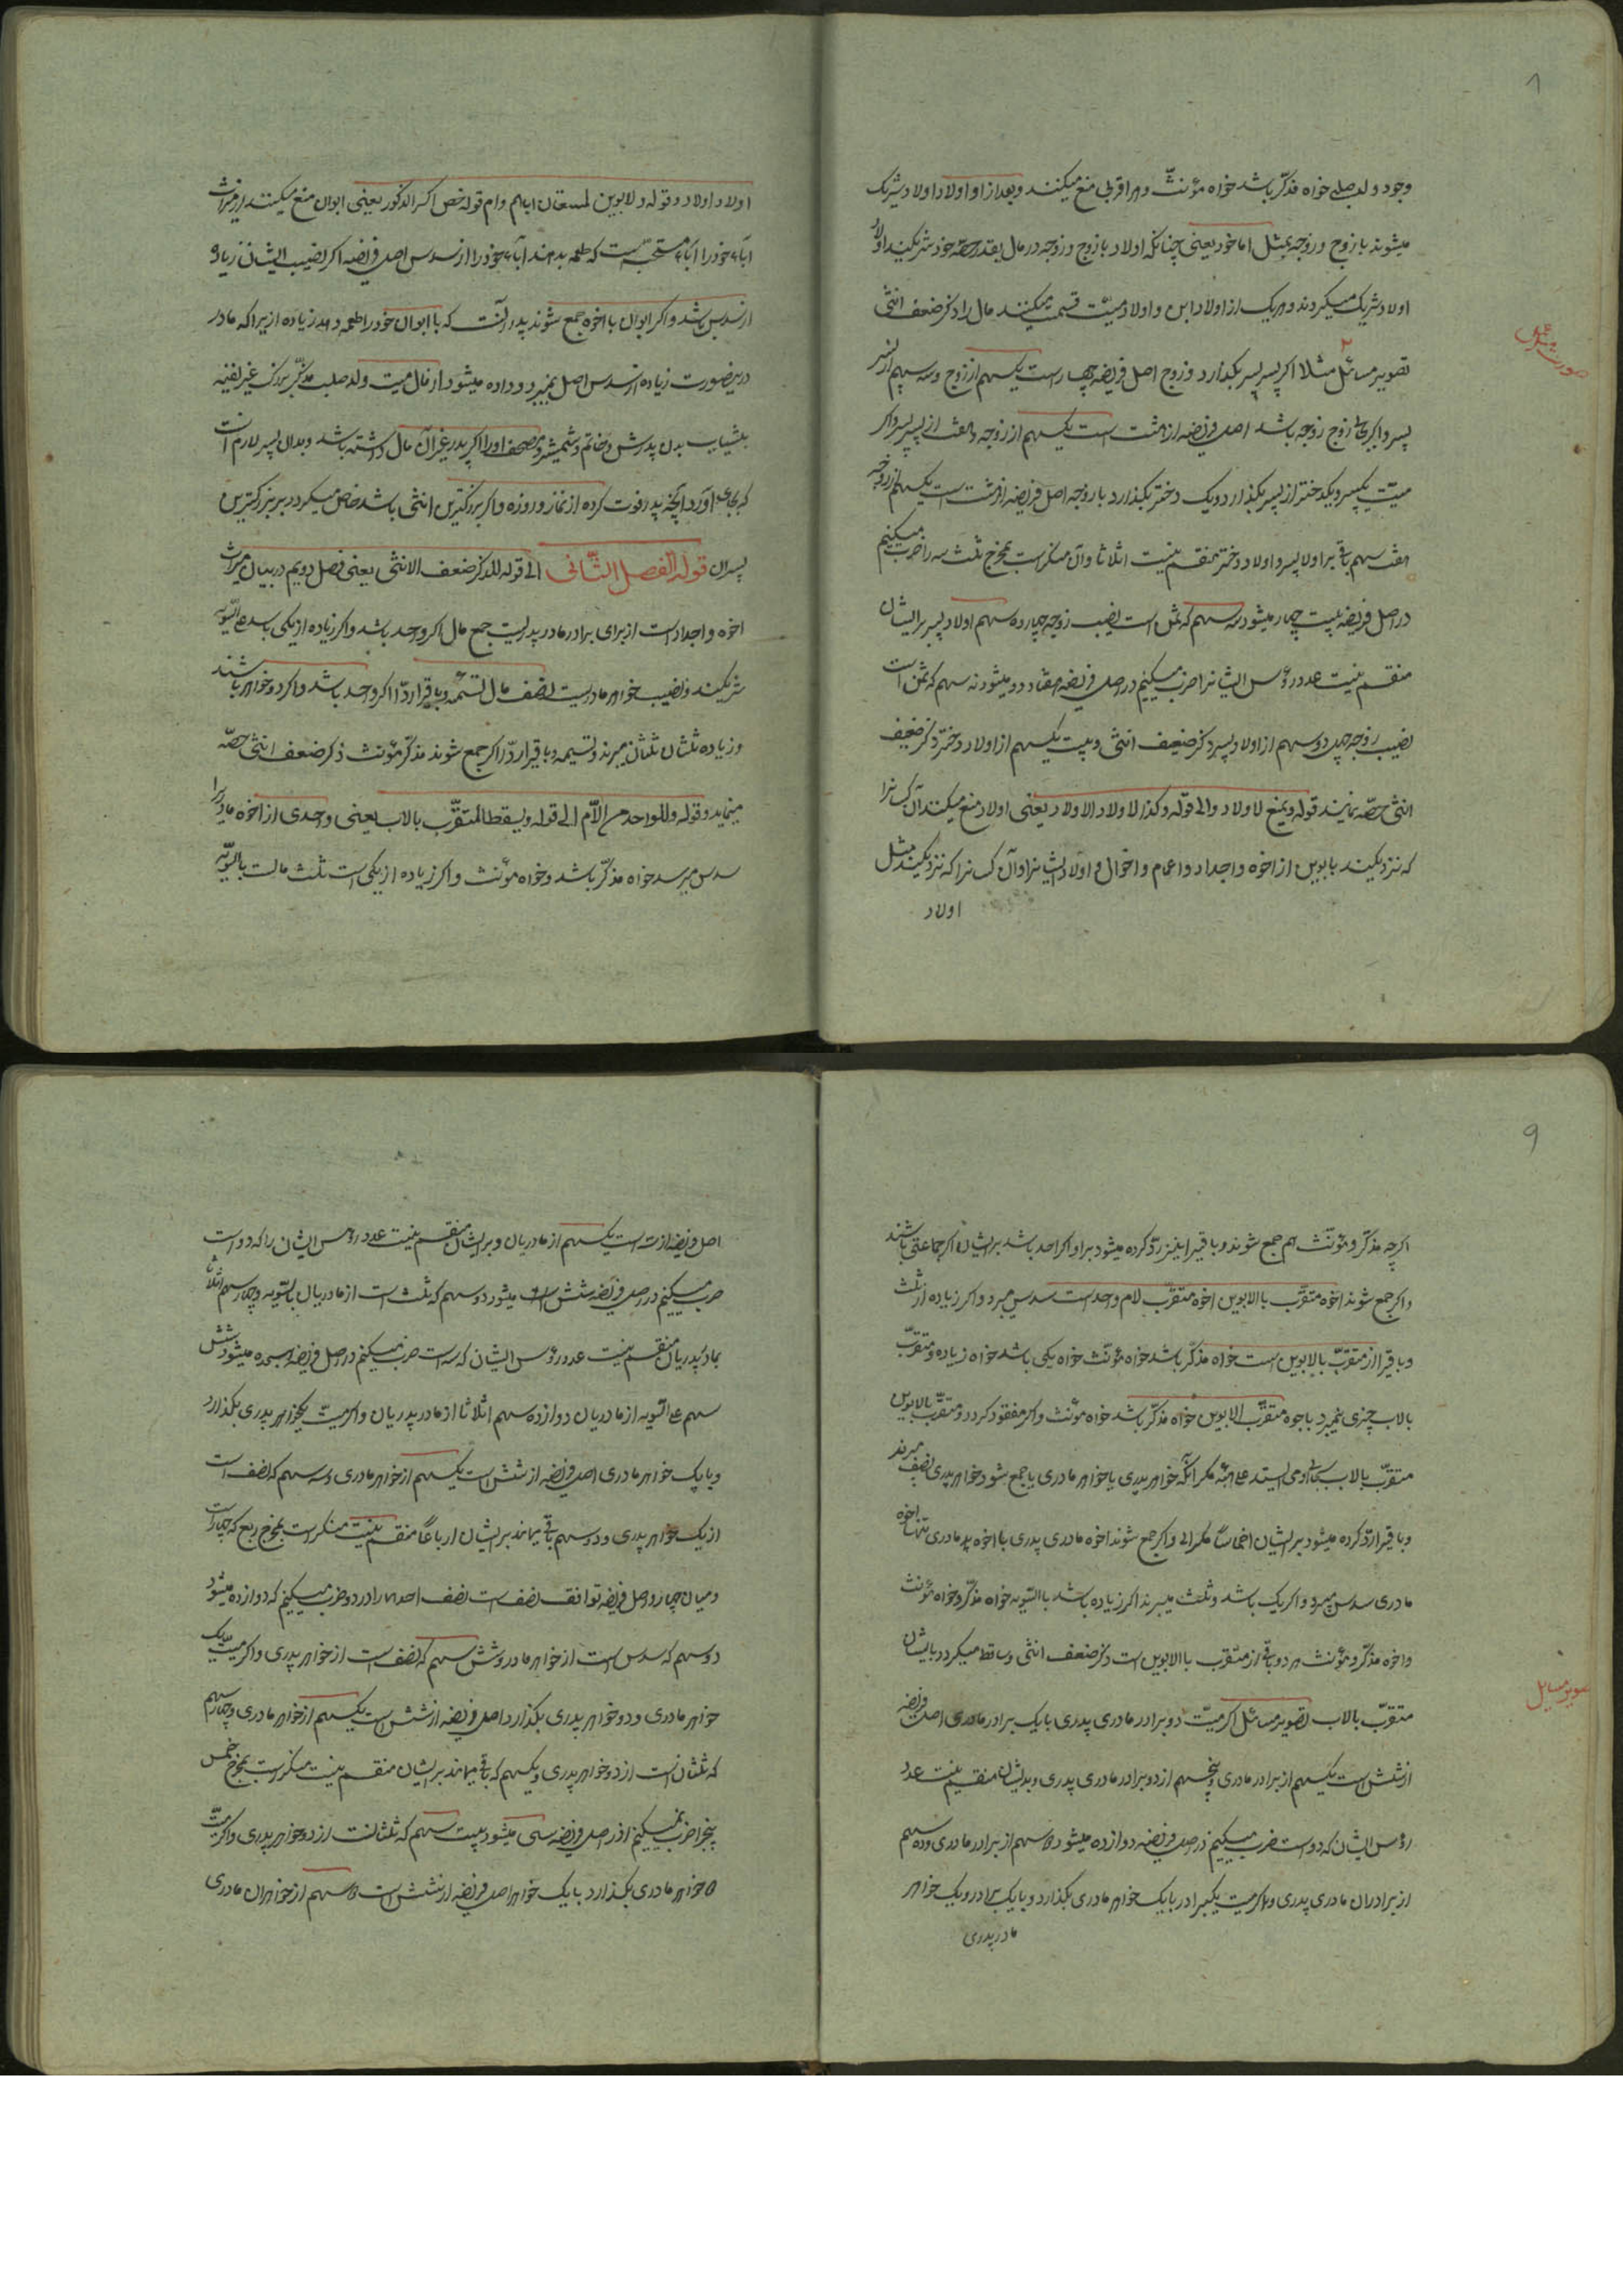 ۸
وجود ولد صلبی خواه مذکّر باشد خواه مؤنثّ و هر اقربی منع میکنند و بعد از او اولاد اولاد شریک
میشوند با زوج و زوجه بمثل اما خود یعنی چنانکه اولاد با زوج و زوجه در مال بقدر حصّه خود شریکند اولاد
اولاد شریک میکردند و هریک از اولاد ابن و اولاد میّت قسمت میکنند مال را ذکر ضعف انثی
صورت
تصویر مسائل مثلا اکر پسر پسر بکذارد و زوج اصل فریضه چهار است یکسهم از زوج و سه سهم از پسر
پسر و اکر بجای زوج زوجه باشد اصل فریضه از هشت است یکسهم از زوجه و هفت از پسر پسر و اکر
میّت یکپسر و یکدختر از پسر بکذارد و یک دختر بکذارد با زوجه اصل فریضه از هشت است یکسهم از زوجه
هفت سهم باقی بر اولاد پسر و اولاد دختر منقسم نیست اثلاثا و آن منکسر است بمخرج ثلث سه را ضرب میکنیم
در اصل فریضه بیست چهار میشود سه سهم که ثمن است نصیب زوجه چهارده سهم اولاد پسر بر ایشان
منقسم نیست عدد رؤس ایشانرا ضرب میکنیم در اصل فریضه هفتاد دو میشود نه سهم که ثمن است
نصیب زوجه چهل دو سهم از اولاد پسر ذکر ضعیف انثی و بیست یکسهم از اولاد دختر ذکر ضعیف
انثی حصّه نمایند قوله و یمنع لاولاد والی قوله و کذا لاولاد الاولاد یعنی اولاد منع میکند آن کسانرا
که نزدیکیند بابوین از اخوه و اجداد و اعمام و اخوال و اولاد ایشانرا و آن کسانرا که نزدیکیند مثل
اولاد
اولاد اولاد و قوله و لابوین لمستعان اباهم و ام قوله خص اکبر الذکور یعنی ابوان منع میکنند از میراث
اباء خود را اباء مستحب است که طعمه بدهند آباء خود را از سدس اصل فریضه اکر نصیب ایشان زیاده
از سدس باشد و اکر ابوان با اخوه جمع شوند پدر آنست که با ابوان خود را طعمه دهد زیاده از یرا که مادر
درینصورت زیاده از سدس اصل نمیبرد و داده میشود از مال میت ولد صلب مذکّر بزرک غیر لفیه
بثیاب بدن پدرش و خاتم و شمیشر و مصحف او را اکر پدر غیر آن مال داشته باشد و بدان پسر لازم است
که بجای آورد آنچه پدر فوت کرده از نماز و روزه و اکر بزرکترین انثی باشد خاص میکردد بر بزرکترین
پسران قوله الفصل الثّانی الی قوله للذکر ضعف الانثی یعنی فصل دویم در بیان میراث
اخوه و اجداد است از برای برادر مادر پدریست جمع مال اکر واحد باشد و اکر زیاده از یکی باشد علی السّویه
شریکند و نصیب خواهر مادریست نصف مال لتسمّه و باقی را ردّا اکر واحد باشد و اکر دو خواهر باشند
و زیاده ثلثان ثلثان میبرند و لتسیمه و باقی را ردّ اکر جمع شوند مذکّر مؤنث ذکر ضعف انثی حصّه
مینماید و قوله و للواحد من الاّم الی قوله و یسقط المتقرّب بالاب یعنی واحدی از اخوه مادر را
سدس میرسد خواه مذکّر باشد و خواه مؤنث و اکر زیاده از یکی است ثلث مالست بالسّویّه
۹
اکرچه مذکّر و مؤنّث هم جمع شوند و باقیرا نیز ردّ کرده میشود بر او اکر احد باشد بر ایشان اکر جماعتی باشند
و اکر جمع شوند اخوه متقرّب بالابوین اخوه متقرّب لام واحد است سدس میبرد و اکر زیاده از ثلث
و باقیرا از متقرّب بالابوین است خواه مذکّر باشد خواه مؤنّث خواه یکی باشد خواه زیاده و متقرّب
بالاب چیزی نمیبرد با وجود متقرّب الابوین خواه مذکّر باشد خواه مؤنث و اکر مفقود کردد و متقرّب بالابوین
متقرّب بالاب بجای او می ایستد علی الهیّه مکر آنکه خواهر پدری یا خواهر مادری یا جمع شود خواهر پدری نصف میبرند
و باقیرا ردّ کرده میشود بر ایشان اخماسا مکر الی و اکر جمع شوند اخوه مادری پدری با اخوه پدر مادری تنها اخوه
مادری سدس میبرد و اکر یک باشد و ثلث میبرند اکر زیاده باشد بالسّویه خواه مذکّر و خواه مؤنث
و اخوه مذکّر و مؤنث هر دو باقی از متقرب بالابوین است ذکر ضعف انثی و ساقط میکردد بایشان
تصویر مسایل
متقرّب بالاب تصویر مسائل اکر میّت دو برادر مادری پدری با یک برادر مادری اصل فریضه
از شش است یکسهم از برادر مادری و پنجسهم از دو برادر مادری پدری و بر ایشان منقسم نیست عدد
رؤس ایشان که دو است ضرب میکنیم در اصل فریضه دوازده میشود ۲ سهم از برادر مادری و ده سهم
از برادران مادری پدری و اکر میت یکبرادر با یک خواهر مادری بکذارد و با یک برادر و یک خواهر
مادر پدری
اصل فریضه از سه است یکسهم از مادریان و بر ایشان منقسم نیست عدد رؤس ایشان را که دو است
ضرب میکنیم در اصل فریضه شش است میشود دو سهم که ثلث است از مادریان بالسّویه و چهار سهم اثلاثا
بمادرپدریان منقسم نیست عدد رؤس ایشان که سه است ضرب میکنیم در اصل فریضه هیجده میشود شش
سهم علی السّویه از مادریان دوازده سهم اثلاثا از مادر پدریان و اکر میّت یکخواهر پدری بکذارد
و با یک خواهر مادری اصل فریضه از شش است یکسهم از خواهر مادری و سه سهم که نصف است
از یک خواهر پدری و دو سهم باقی بماند بر ایشان ارباعًا منقسم نیست منکسر است بمخرج ربع که چهار است
و میان چهار و اصل فریضه توافق بنصف است نصف احدهما را در دو ضرب میکنیم که دوازده میشود
دو سهم که سدس است از خواهر مادر و شش سهم که نصف است از خواهر پدری و اکر میّت یک
خواهر مادری و دو خواهر پدری بکذارد اصل فریضه از شش است یکسهم از خواهر مادری و چهار سهم
که ثلثان است از دو خواهر پدری و یکسهم که باقی بماند بر ایشان منقسم نیست منکسر است بمخرج خمس
پنج را ضرب میکنیم در اصل فریضه سی میشود بیست سهم که ثلثانست از دو خواهر پدری و اکر میّت
۲ خواهر مادری بکذارد با یک خواهر اصل فریضه از شش است ۲ سهم از خواهران مادری